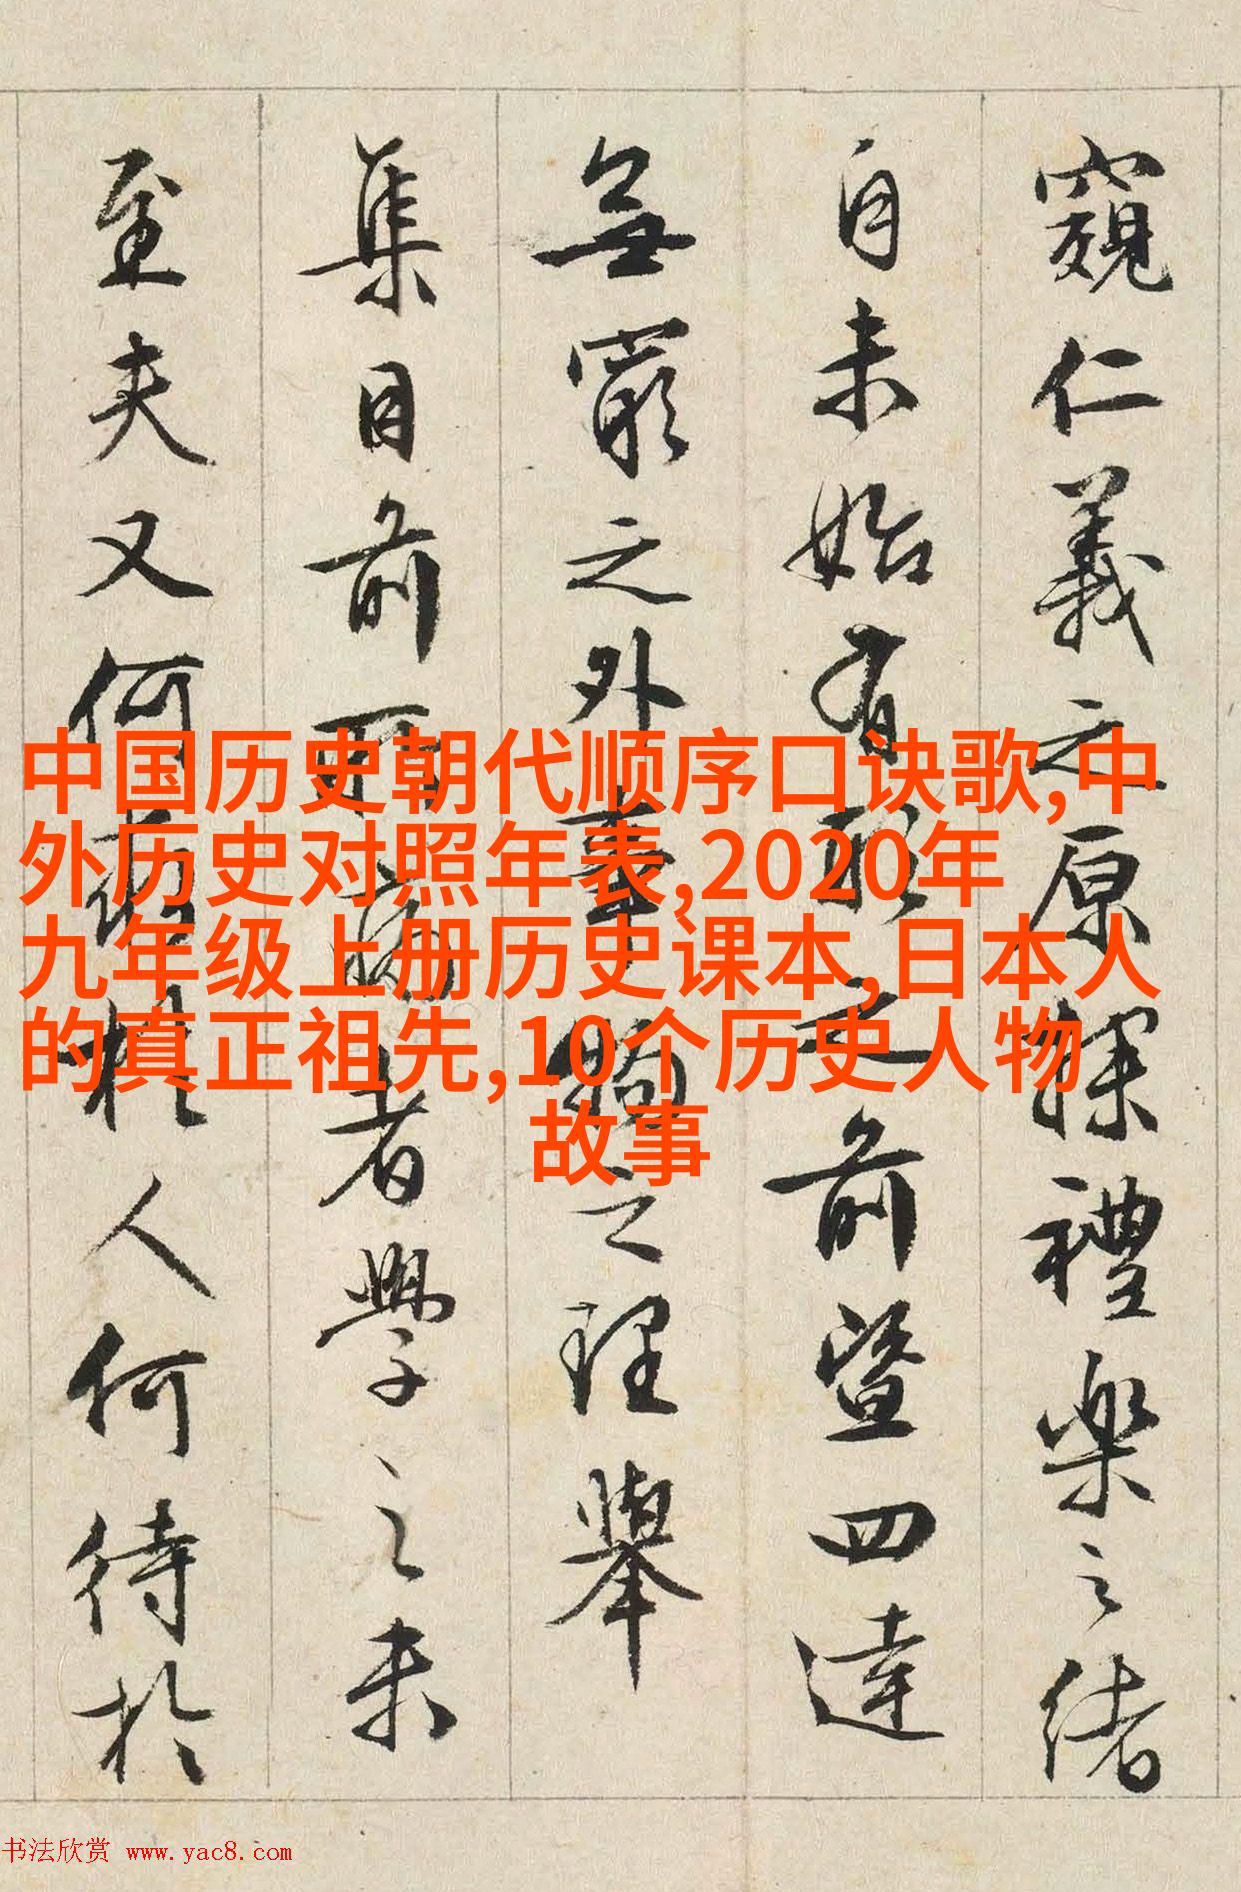 窺仁義之原探禮樂之緒
自未始有形之前暨四達
無窮之外事物之理舉
集目前所病者學之未
至夫又何求於人何待於
中国历史朝代顺序口诀歌,中
外历史对照年表,2020年
九年级上册历史课本,日本人
的真正祖先,10个历史人物
故事
书法欣赏 www.yac8.com